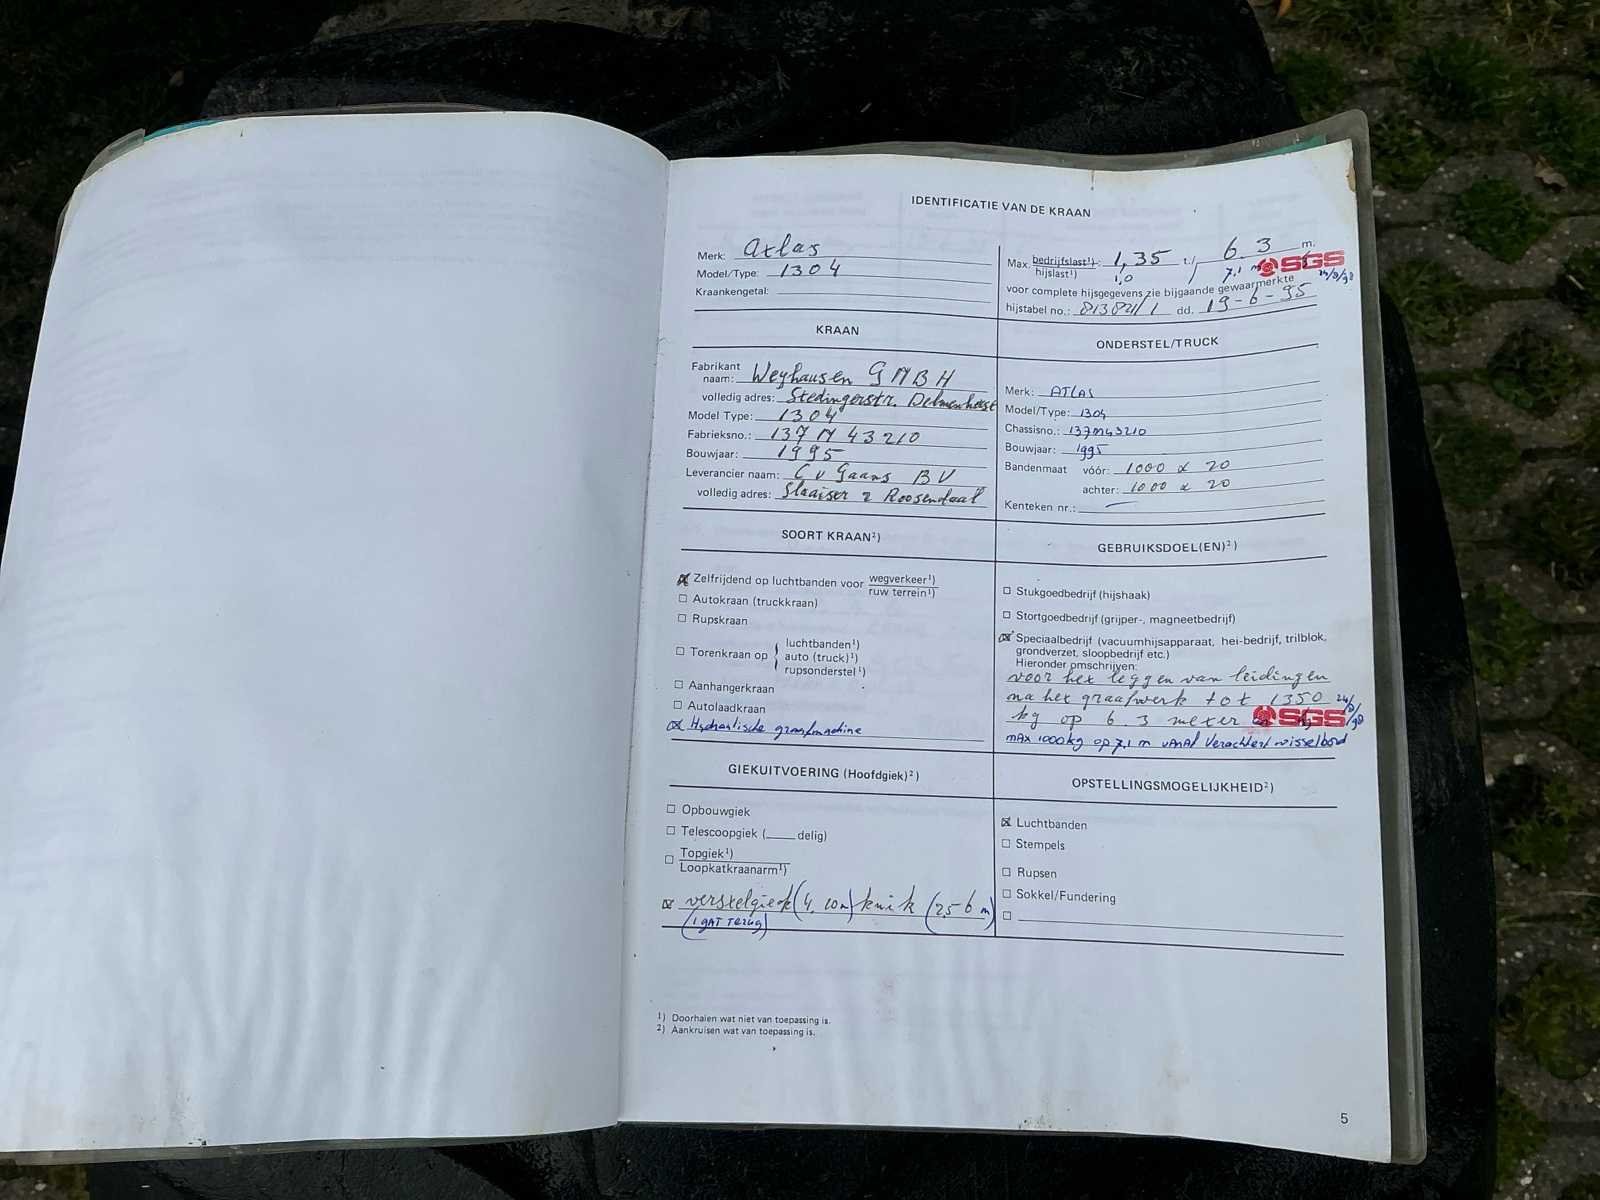 IDENTIFICATIE VAN DE KRAAN
Merk: Atlas
Model/Type: 1304
Kraankengetal:
Max. bedrijfslast¹) : 1,35 t./ 6.3 m.
hijslast¹) 1,0 7,1 m SGS 24/8/98
voor complete hijsgegevens zie bijgaande gewaarmerkte
hijstabel no.: 81384/1 dd. 19-6-95
KRAAN
Fabrikant
naam: Weyhausen GMBH
volledig adres: Stedingerstr. Delmenhorst
Model Type: 1304
Fabrieksno.: 137M43210
Bouwjaar: 1995
Leverancier naam: C v Gaans BV
volledig adres: Slaaiser 2 Roosendaal
ONDERSTEL/TRUCK
Merk: ATLAS
Model/Type: 1304
Chassisno.: 137M43210
Bouwjaar: 1995
Bandenmaat vóór: 1000 x 20
achter: 1000 x 20
Kenteken nr.: —
SOORT KRAAN²)
Zelfrijdend op luchtbanden voor wegverkeer¹)
ruw terrein¹)
Autokraan (truckkraan)
Rupskraan
luchtbanden¹)
Torenkraan op auto (truck)¹)
rupsonderstel¹)
Aanhangerkraan
Autolaadkraan
Hydraulische graafmachine
GEBRUIKSDOEL(EN)²)
Stukgoedbedrijf (hijshaak)
Stortgoedbedrijf (grijper-, magneetbedrijf)
Speciaalbedrijf (vacuumhijsapparaat, hei-bedrijf, trilblok,
grondverzet, sloopbedrijf etc.)
Hieronder omschrijven:
voor het leggen van leidingen
na het graafwerk tot 1350 24/8/98
kg op 6.3 meter SGS
MAX 1000kg op 7,1 m vanaf Verachtert wisselbord
GIEKUITVOERING (Hoofdgiek)²)
Opbouwgiek
Telescoopgiek ( delig)
Topgiek¹)
Loopkatkraanarm¹)
verstelgiek (4,10m) knik (2,56 m)
(1 GAT TERUG)
OPSTELLINGSMOGELIJKHEID²)
Luchtbanden
Stempels
Rupsen
Sokkel/Fundering
¹) Doorhalen wat niet van toepassing is.
²) Aankruisen wat van toepassing is.
5